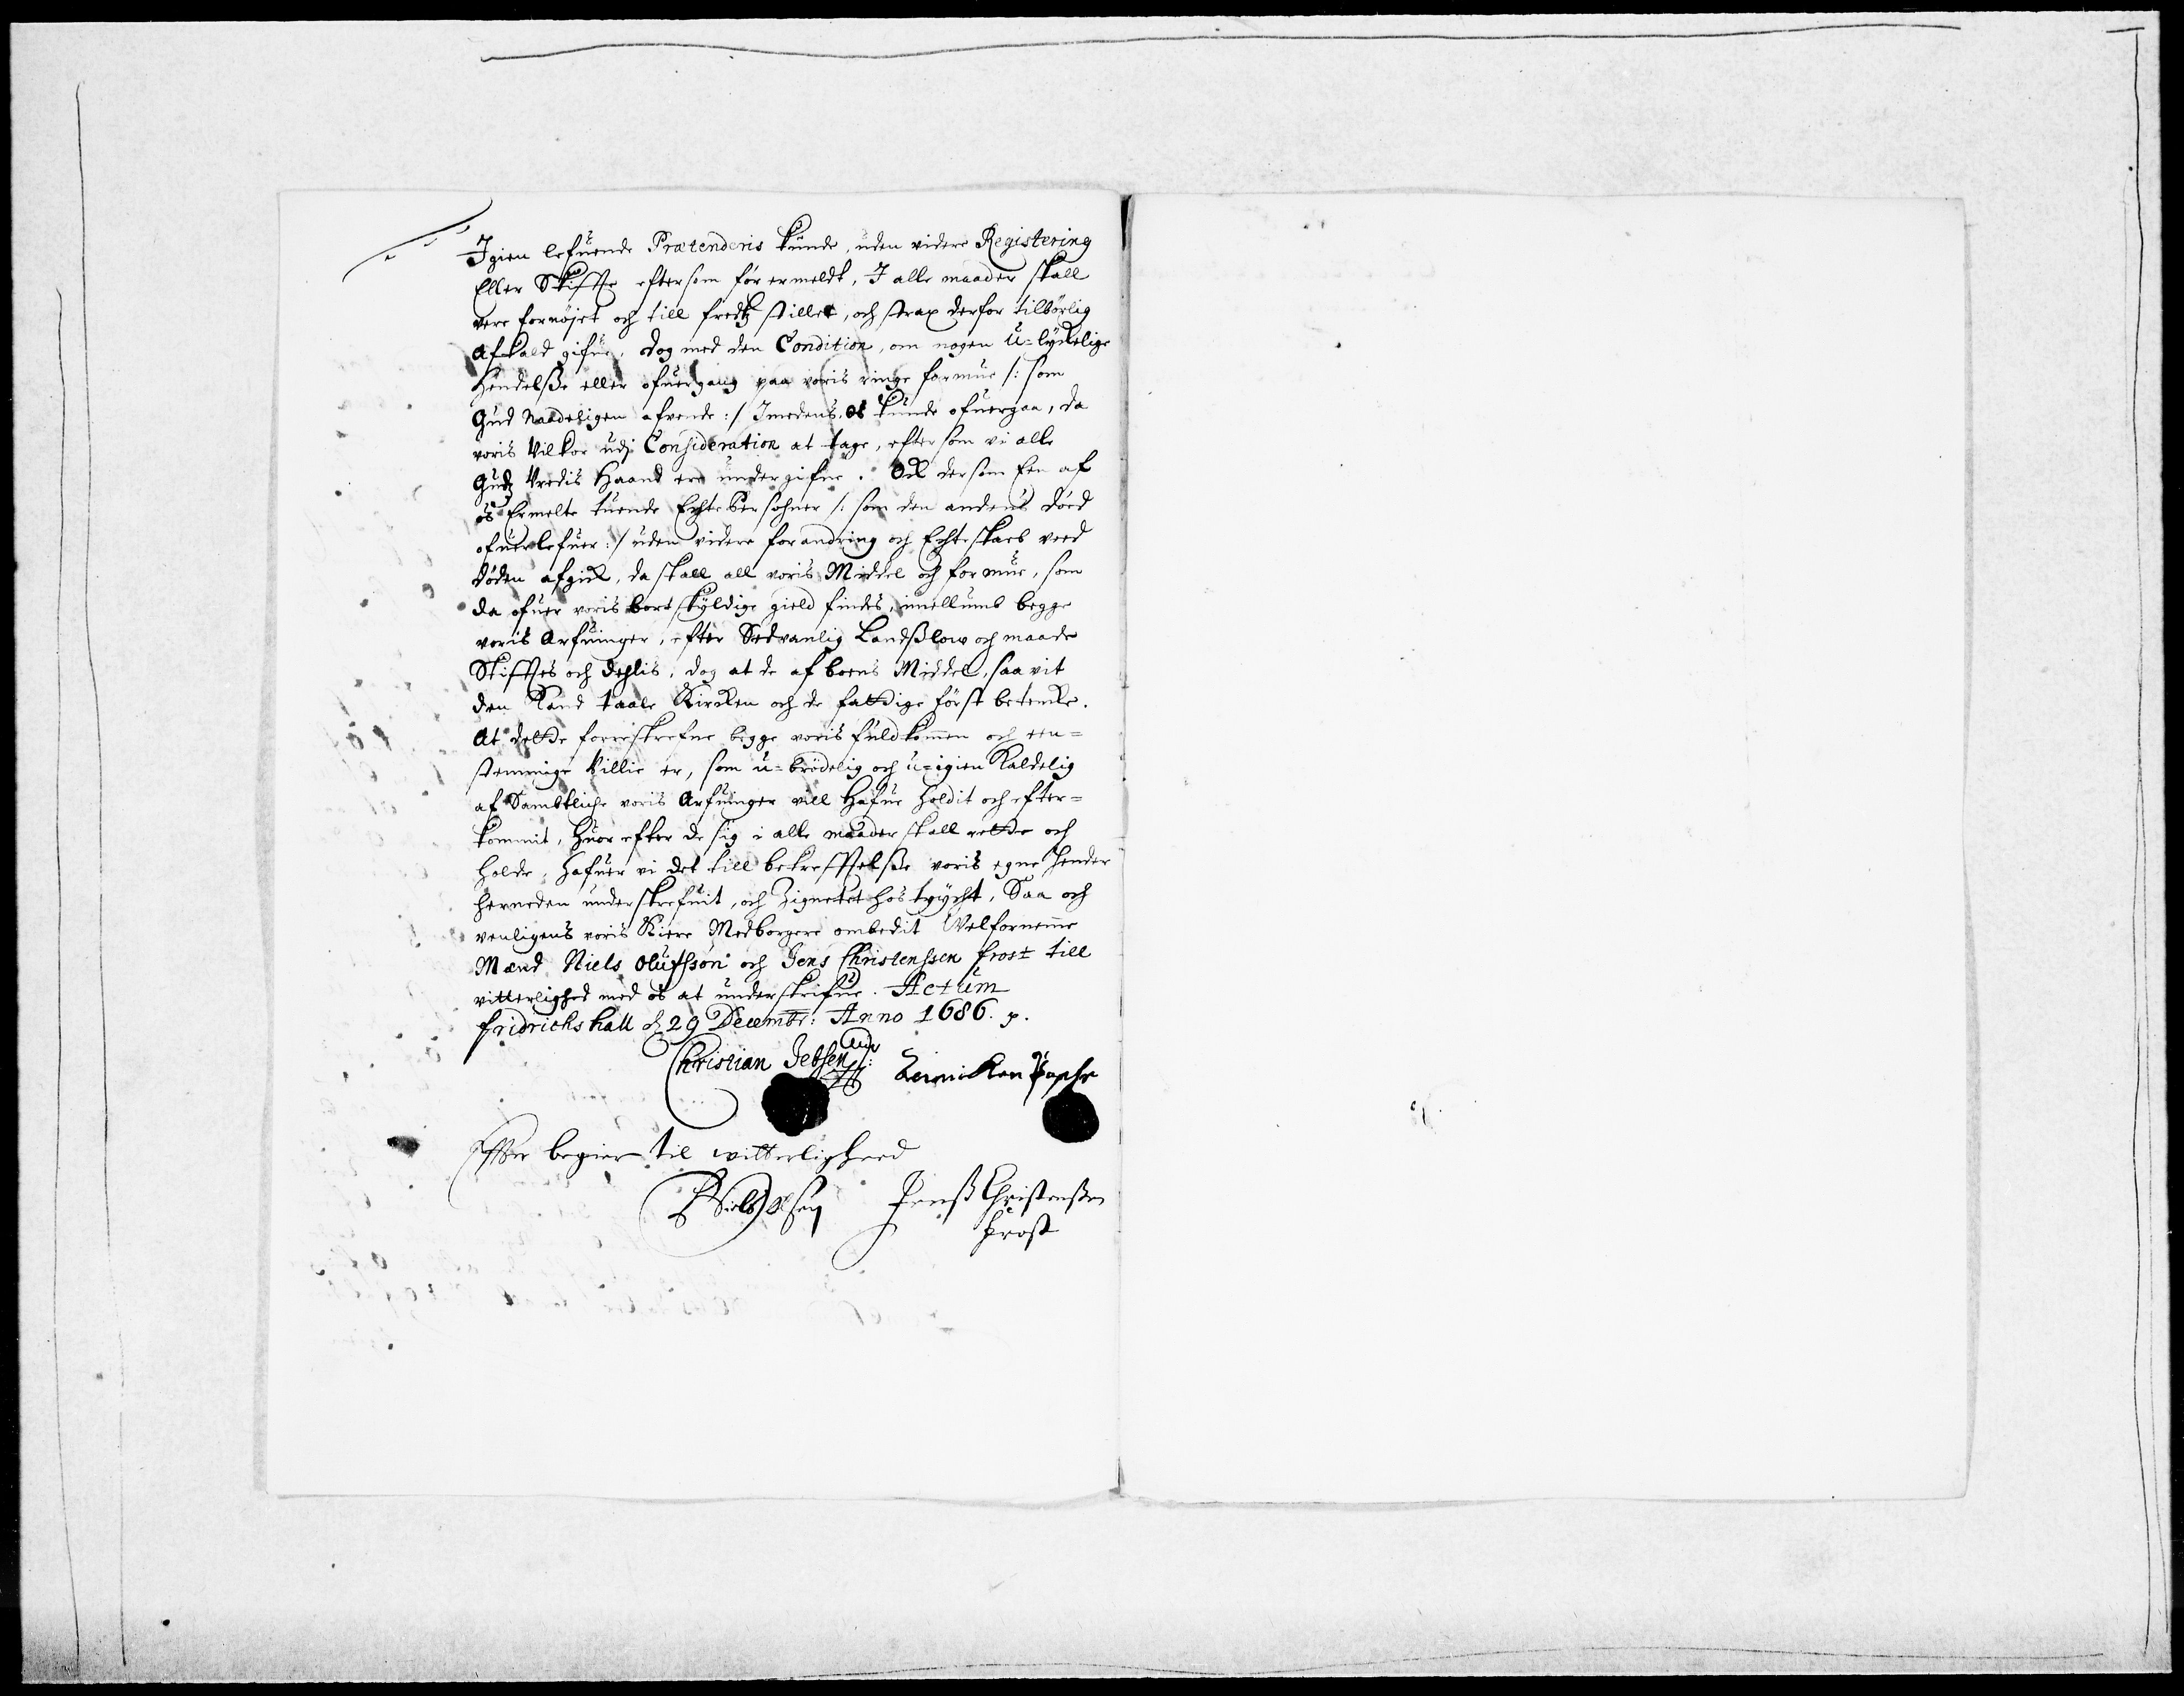 Igien lefuende Prætenderis kunde, uden videre Registering
Eller Skiffte eftersom för ermeldt, I alle maader skall
vere fornøjet och till fredtz stillet, och strax derfor tilbörlig
afkald gifue, dog med den Condition, om nogen U-lyckelige
hendelsße eller ofuergang paa voris ringe formue /: som
Gud Naadeligen afvende :/ Imedens, os kunde ofuergaa, da
voris Vilkor udj Consideration at tage, efter som vi alle
Gudtz Vredis Haand ere undergifne. Och dersom Een af
os Ermelte tuende Echte Persohner /: som den andens dôed
ofuerlefuer :/ uden videre forandring och Echteskaeb ved
døden afgick, da skall all voris Middel och formue, som
da ofuer voris bortskyldige gield findes, imellumb begge
voris Arfuinger, efter Sedvanlig Landßlow och maade
Skifftes och dehlis, dog at de af boens Middel, saa vit
den Kand taale Kircken och de fattige först betencke.
At dette forreskrefne begge voris fuldkommen och een=
stemmige Villie er, som u=brödelig och u=igien Kaldelig
af Sambtliche voris Arfuinger vill Hafue holdit och efter=
kommit, Huor efter de sig i alle maader skall rette och
holde, Hafuer vi det till bekrefftelsße voris egne Hender
herneden underskrefuit, och Zignetet hos tryckt, Saa och
venligens voris Kiere Medborgere ombedit Velfornemme
Mænd Niels Olufssøn och Jens Christenssen frost till
vitterlighed med os at underskrifue. Actum
fridrichshall d. 29 Decembr: Anno 1686. p.
Christian Jebsen
Efter begier til witterligheed
Niels Olsen Jenß Christenßen
frost